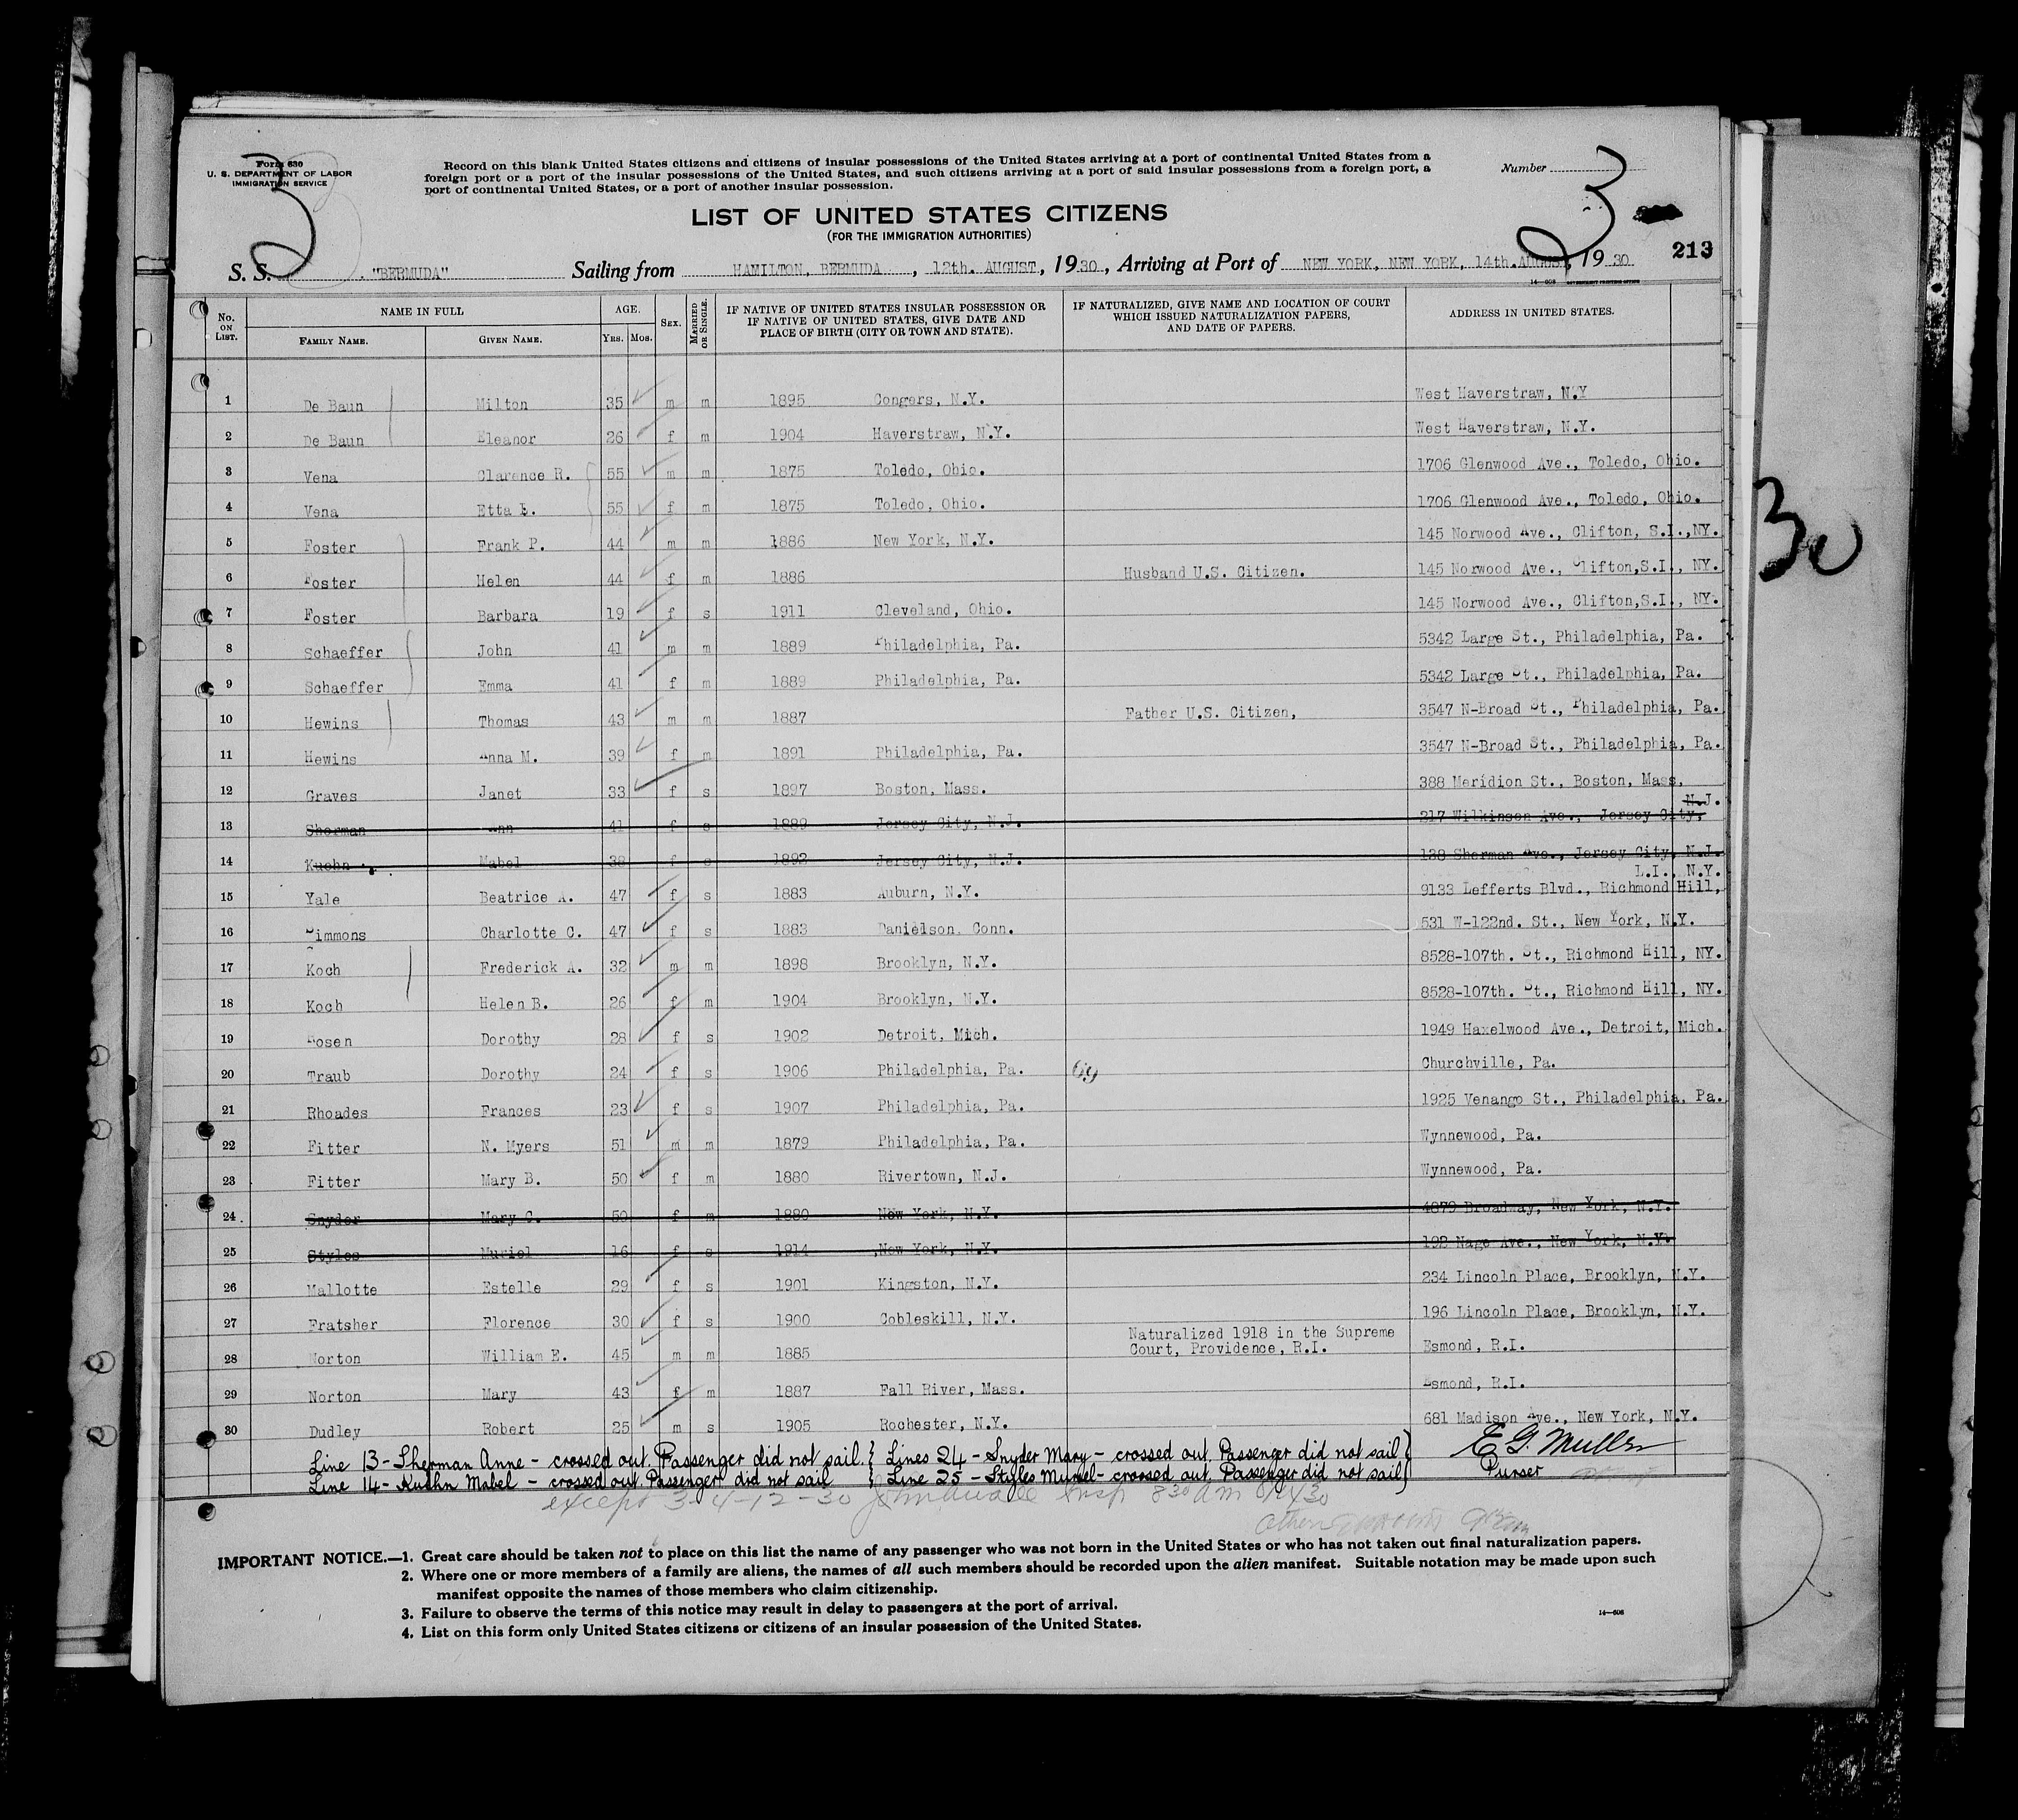 Form 630
U. S. DEPARTMENT OF LABOR
IMMIGRATION SERVICE
3
Record on this blank United States citizens and citizens of insular possessions of the United States arriving at a port of continental United States from a
foreign port or a port of the insular possessions of the United States, and such citizens arriving at a port of said insular possessions from a foreign port, a
port of continental United States, or a port of another insular possession.
Number
3
LIST OF UNITED STATES CITIZENS
(FOR THE IMMIGRATION AUTHORITIES)
213
S. S. "BERMUDA" Sailing from HAMILTON, BERMUDA, 12th. AUGUST, 1930, Arriving at Port of NEW YORK, NEW YORK, 14th. AUGUST, 1930
14—608 GOVERNMENT PRINTING OFFICE
No. ON LIST. NAME IN FULL FAMILY NAME. GIVEN NAME. AGE. YRS. MOS. SEX. MARRIED OR SINGLE. IF NATIVE OF UNITED STATES INSULAR POSSESSION OR IF NATIVE OF UNITED STATES, GIVE DATE AND PLACE OF BIRTH (CITY OR TOWN AND STATE). IF NATURALIZED, GIVE NAME AND LOCATION OF COURT WHICH ISSUED NATURALIZATION PAPERS, AND DATE OF PAPERS. ADDRESS IN UNITED STATES.
1 De Baun Milton 35 m m 1895 Congers, N.Y. West Haverstraw, N.Y
2 De Baun Eleanor 26 f m 1904 Haverstraw, N.Y. West Haverstraw, N.Y.
3 Vena Clarence R. 55 m m 1875 Toledo, Ohio. 1706 Glenwood Ave., Toledo, Ohio.
4 Vena Etta L. 55 f m 1875 Toledo, Ohio. 1706 Glenwood Ave., Toledo, Ohio.
5 Foster Frank P. 44 m m 1886 New York, N.Y. 145 Norwood Ave., Clifton, S.I.,NY.
6 Foster Helen 44 f m 1886 Husband U.S. Citizen. 145 Norwood Ave., Clifton,S.I., NY.
7 Foster Barbara 19 f s 1911 Cleveland, Ohio. 145 Norwood Ave., Clifton,S.I., NY.
8 Schaeffer John 41 m m 1889 Philadelphia, Pa. 5342 Large St., Philadelphia, Pa.
9 Schaeffer Emma 41 f m 1889 Philadelphia, Pa. 5342 Large St., Philadelphia, Pa.
10 Hewins Thomas 43 m m 1887 Father U.S. Citizen, 3547 N-Broad St., Philadelphia, Pa.
11 Hewins Anna M. 39 f m 1891 Philadelphia, Pa. 3547 N-Broad St., Philadelphia, Pa.
12 Graves Janet 33 f s 1897 Boston, Mass. 388 Meridion St., Boston, Mass,
13 Sherman Ann 41 f s 1889 Jersey City, N.J. 217 Wilkinson Ave., Jersey City, N.J.
14 Kuehn Mabel 38 f s 1892 Jersey City, N.J. 138 Sherman Ave., Jersey City, N.J.
15 Yale Beatrice A. 47 f s 1883 Auburn, N.Y. 9133 Lefferts Blvd., Richmond Hill, L.I., N.Y.
16 Simmons Charlotte C. 47 f s 1883 Danielson. Conn. 531 W-122nd. St., New York, N.Y.
17 Koch Frederick A. 32 m m 1898 Brooklyn, N.Y. 8528-107th. St., Richmond Hill, NY.
18 Koch Helen B. 26 f m 1904 Brooklyn, N.Y. 8528-107th. St., Richmond Hill, NY.
19 Rosen Dorothy 28 f s 1902 Detroit, Mich. 1949 Haxelwood Ave., Detroit, Mich.
20 Traub Dorothy 24 f s 1906 Philadelphia, Pa. Churchville, Pa.
21 Rhoades Frances 23 f s 1907 Philadelphia, Pa. 1925 Venango St., Philadelphia, Pa.
22 Fitter N. Myers 51 m m 1879 Philadelphia, Pa. Wynnewood, Pa.
23 Fitter Mary B. 50 f m 1880 Rivertown, N.J. Wynnewood, Pa.
24 Snyder Mary C. 50 f m 1880 New York, N.Y. 4879 Broadway, New York, N.Y.
25 Styles Muriel 16 f s 1914 New York, N.Y. 192 Nage Ave., New York, N.Y.
26 Mallotte Estelle 29 f s 1901 Kingston, N.Y. 234 Lincoln Place, Brooklyn, N.Y.
27 Fratsher Florence 30 f s 1900 Cobleskill, N.Y. 196 Lincoln Place, Brooklyn, N.Y.
28 Norton William E. 45 m m 1885 Naturalized 1918 in the Supreme Court, Providence, R.I. Esmond, R.I.
29 Norton Mary 43 f m 1887 Fall River, Mass. Esmond, R.I.
30 Dudley Robert 25 m s 1905 Rochester, N.Y. 681 Madison Ave., New York, N.Y.
Line 13-Sherman Anne - crossed out. Passenger did not sail. } Lines 24 - Snyder Mary - crossed out. Passenger did not sail }
Line 14- Kuehn Mabel - crossed out Passenger did not sail } Line 25 - Styles Muriel- crossed out. Passenger did not sail }
E G. Muller
Purser
except 3-4-12-30
IMPORTANT NOTICE.—1. Great care should be taken not to place on this list the name of any passenger who was not born in the United States or who has not taken out final naturalization papers.
2. Where one or more members of a family are aliens, the names of all such members should be recorded upon the alien manifest. Suitable notation may be made upon such
manifest opposite the names of those members who claim citizenship.
3. Failure to observe the terms of this notice may result in delay to passengers at the port of arrival.
4. List on this form only United States citizens or citizens of an insular possession of the United States.
14—608
30